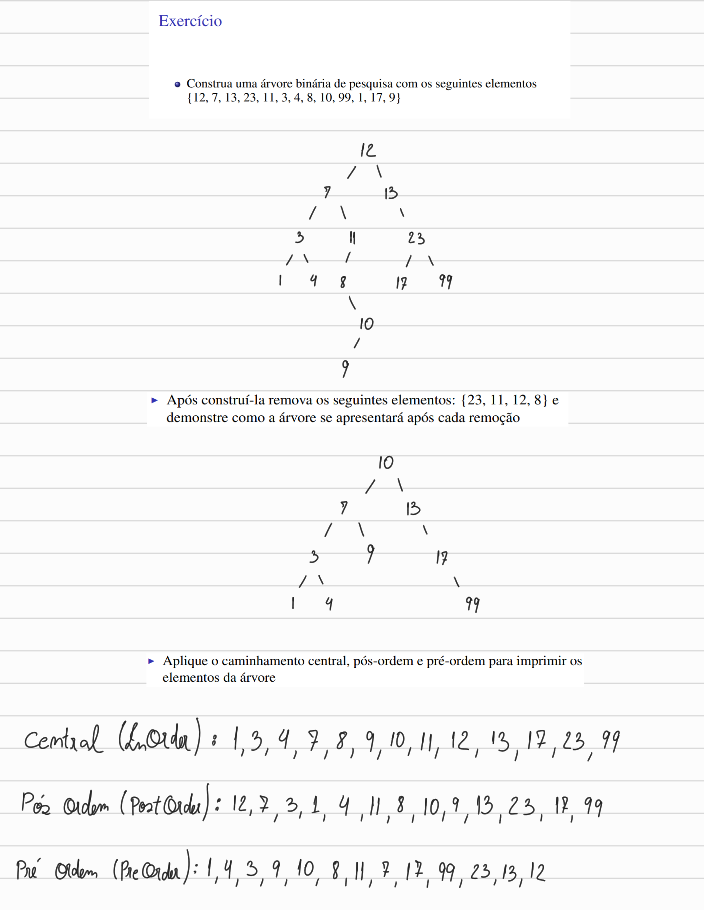 Exercício
Construa uma árvore binária de pesquisa com os seguintes elementos
{12, 7, 13, 23, 11, 3, 4, 8, 10, 99, 1, 17, 9}
12
7 13
3 11 23
1 4 8 17 99
10
9
Após construí-la remova os seguintes elementos: {23, 11, 12, 8} e
demonstre como a árvore se apresentará após cada remoção
10
7 13
3 9 17
1 4 99
Aplique o caminhamento central, pós-ordem e pré-ordem para imprimir os
elementos da árvore
Central (InOrder) : 1, 3, 4, 7, 8, 9, 10, 11, 12, 13, 17, 23, 99
Pós Ordem (PostOrder) : 12, 7, 3, 1, 4, 11, 8, 10, 9, 13, 23, 17, 99
Pré Ordem (PreOrder) : 1, 4, 3, 9, 10, 8, 11, 7, 17, 99, 23, 13, 12